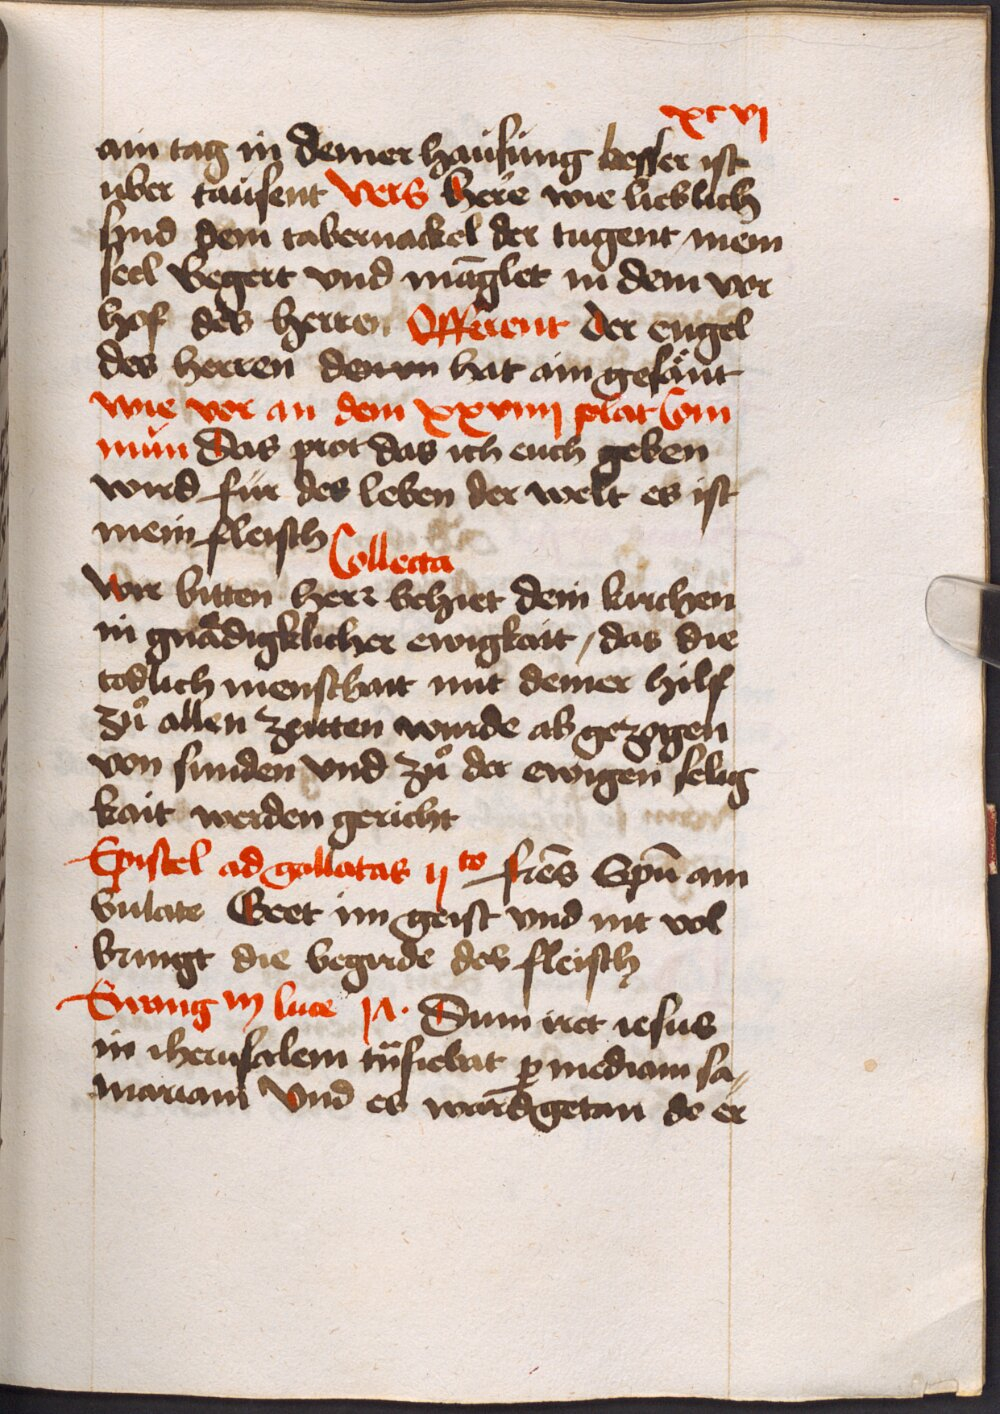 xcvi
ain tag in deiner haüsüng besser ist
über taüsent Vers here wie lieblich
sind dein tabernackel der tugent mein
seel begert vnd māglet in dem vor
hof des herren Offerent Der engel
des herren hat ain gesänt
wie vor an dem xxviiii plat Com
mün Das prot das ich euch geben
wird für des leben der welt es ist
mein fleisch
Collecta
Wir bitten herr behiet dein kirchen
in gnädigklicher ewigkait / das die
todlich menschait mit deiner hilf
zů allen zeitten wurde ab gezogen
von sunden vnd zů der ewigen selig
kait werden gericht
Epistel ad gallatas ii to frēs Spū am
bulate Geet im geist vnd nit vol
bringt die begirde des fleisch
Ewang luce Dum iret iesus
in iherusalem p mediam sa
mariam Vnd es ward getan do er